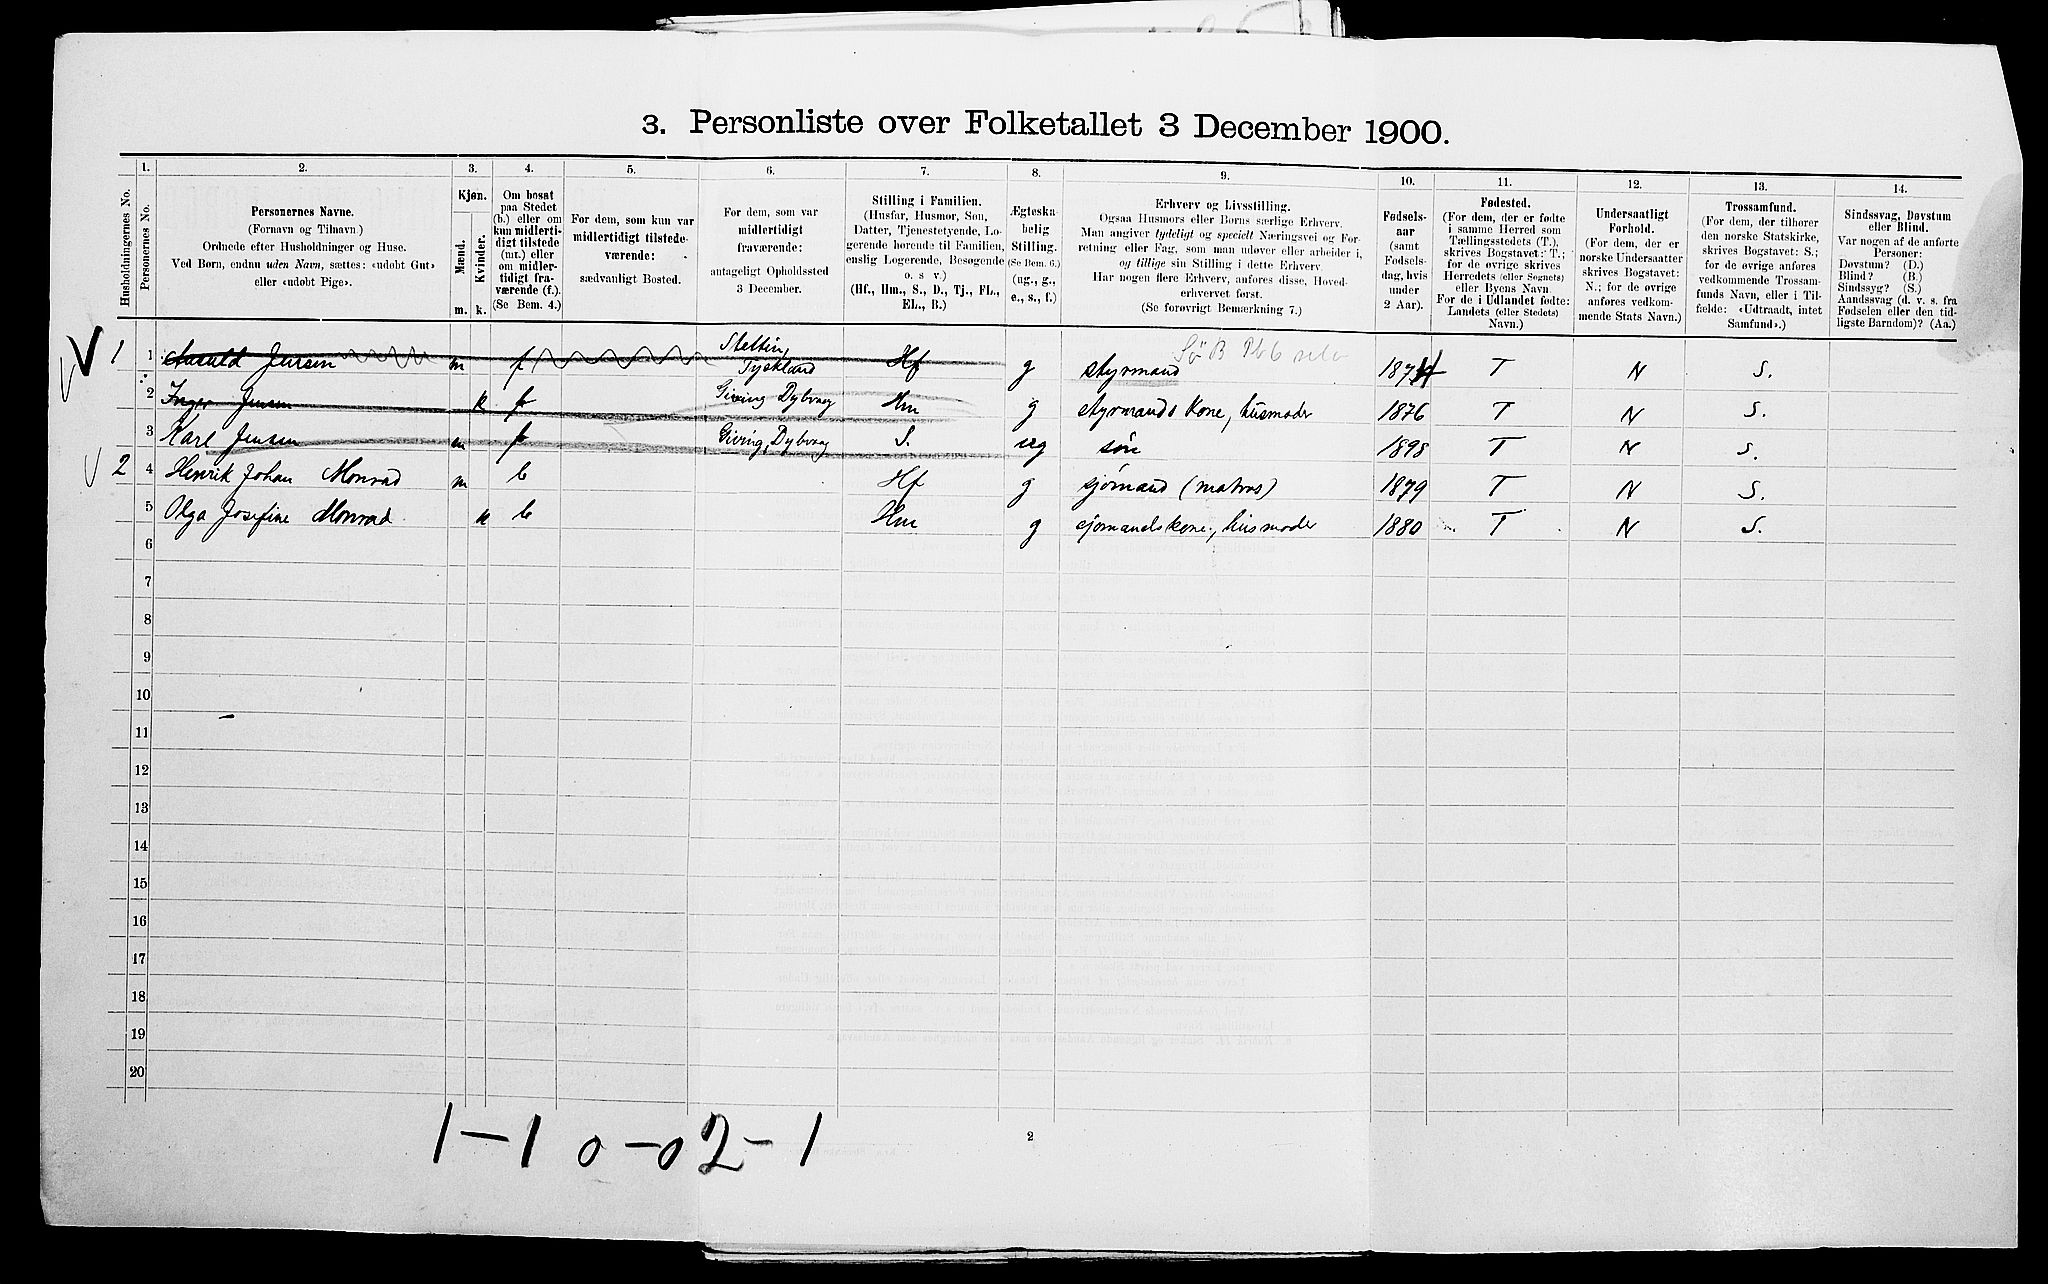 3. Personliste over Folketallet 3 December 1900.
Husholdningernes No.
1. Personernes No.
2. Personernes Navne.
(Fornavn og Tilnavn)
Ordnede efter Husholdninger og Huse.
Ved Børn, endnu uden Navn, sættes: «udøbt Gut»
eller «udøbt Pige».
3. Kjøn.
Mænd. Kvinder.
m. k.
4. Om bosat
paa Stedet
(b.) eller om
kun midlerti-
digt tilstede
(mt.) eller
om midler-
tidigt fra-
værende (f.).
(Se Bem. 4.)
5. For dem, som kun var
midlertidigt tilstede-
værende:
sædvanligt Bosted.
6. For dem, som var
midlertidigt
fraværende:
antageligt Opholdssted
3 December.
7. Stilling i Familien.
(Husfar, Husmor, Søn,
Datter, Tjenestetyende, Lo-
gerende hørende til Familien,
enslig Logerende, Besøgende
o. s v.)
(Hf., Hm., S., D., Tj., FL.,
EL., B.)
8. Ægteska-
belig
Stilling.
(Se Bem. 6.)
(ug., g.,
e., s., f.)
9. Erhverv og Livsstilling.
Ogsaa Husmors eller Børns særlige Erhverv.
Man angiver tydeligt og specielt Næringsvei og For-
retning eller Fag, som man udøver eller arbeider i,
og tillige sin Stilling i dette Erhverv.
Har nogen flere Erhverv, anføres disse, Hoved-
erhvervet først.
(Se forøvrigt Bemærkning 7.)
10. Fødsels-
aar
(samt
Fødsels-
dag, hvis
under
2 Aar).
11. Fødested.
(For dem, der er fødte
i samme Herred som
Tællingsstedets (T.),
skrives Bogstavet: T.;
for de øvrige skrives
Herredets (eller Sognets)
eller Byens Navn.
For de i Udlandet fødte:
Landets (eller Stedets)
Navn.)
12. Undersaatligt
Forhold.
(For dem, der er
norske Undersaatter
skrives Bogstavet:
N.; for de øvrige
anføres vedkom-
mende Stats Navn.)
13. Trossamfund.
(For dem, der tilhører
den norske Statskirke,
skrives Bogstavet: S.;
for de øvrige anføres
vedkommende Trossam-
funds Navn, eller i Til-
fælde: «Udtraadt, intet
Samfund».)
14. Sindssvag, Døvstum
eller Blind.
Var nogen af de anførte
Personer:
Døvstum? (D.)
Blind? (B.)
Sindssyg? (S.)
Aandssvag (d. v. s. fra
Fødselen eller den tid-
ligste Barndom)? (Aa.)
Stettin,
1 1 Jensen m f Tyskland Hf g styrmand 187 T N S.
2 Inger Jensen k f Giving Dybvaag Hm g styrmands kone, husmoder 1876 T N S.
3 Karl Jensen m f Giving, Dybvaag S. ug søn 1898 T N S.
2 4 Henrik Johan Monrad m b Hf g sjømand (matros) 1879 T N S.
5 Olga Josefine Monrad k b Hm g sjømandskone, husmoder 1880 T N S.
6
7
8
9
10
11
12
13
14
15
16
17
18
19
20
1 – 1 0 – 0 2 – 1
2